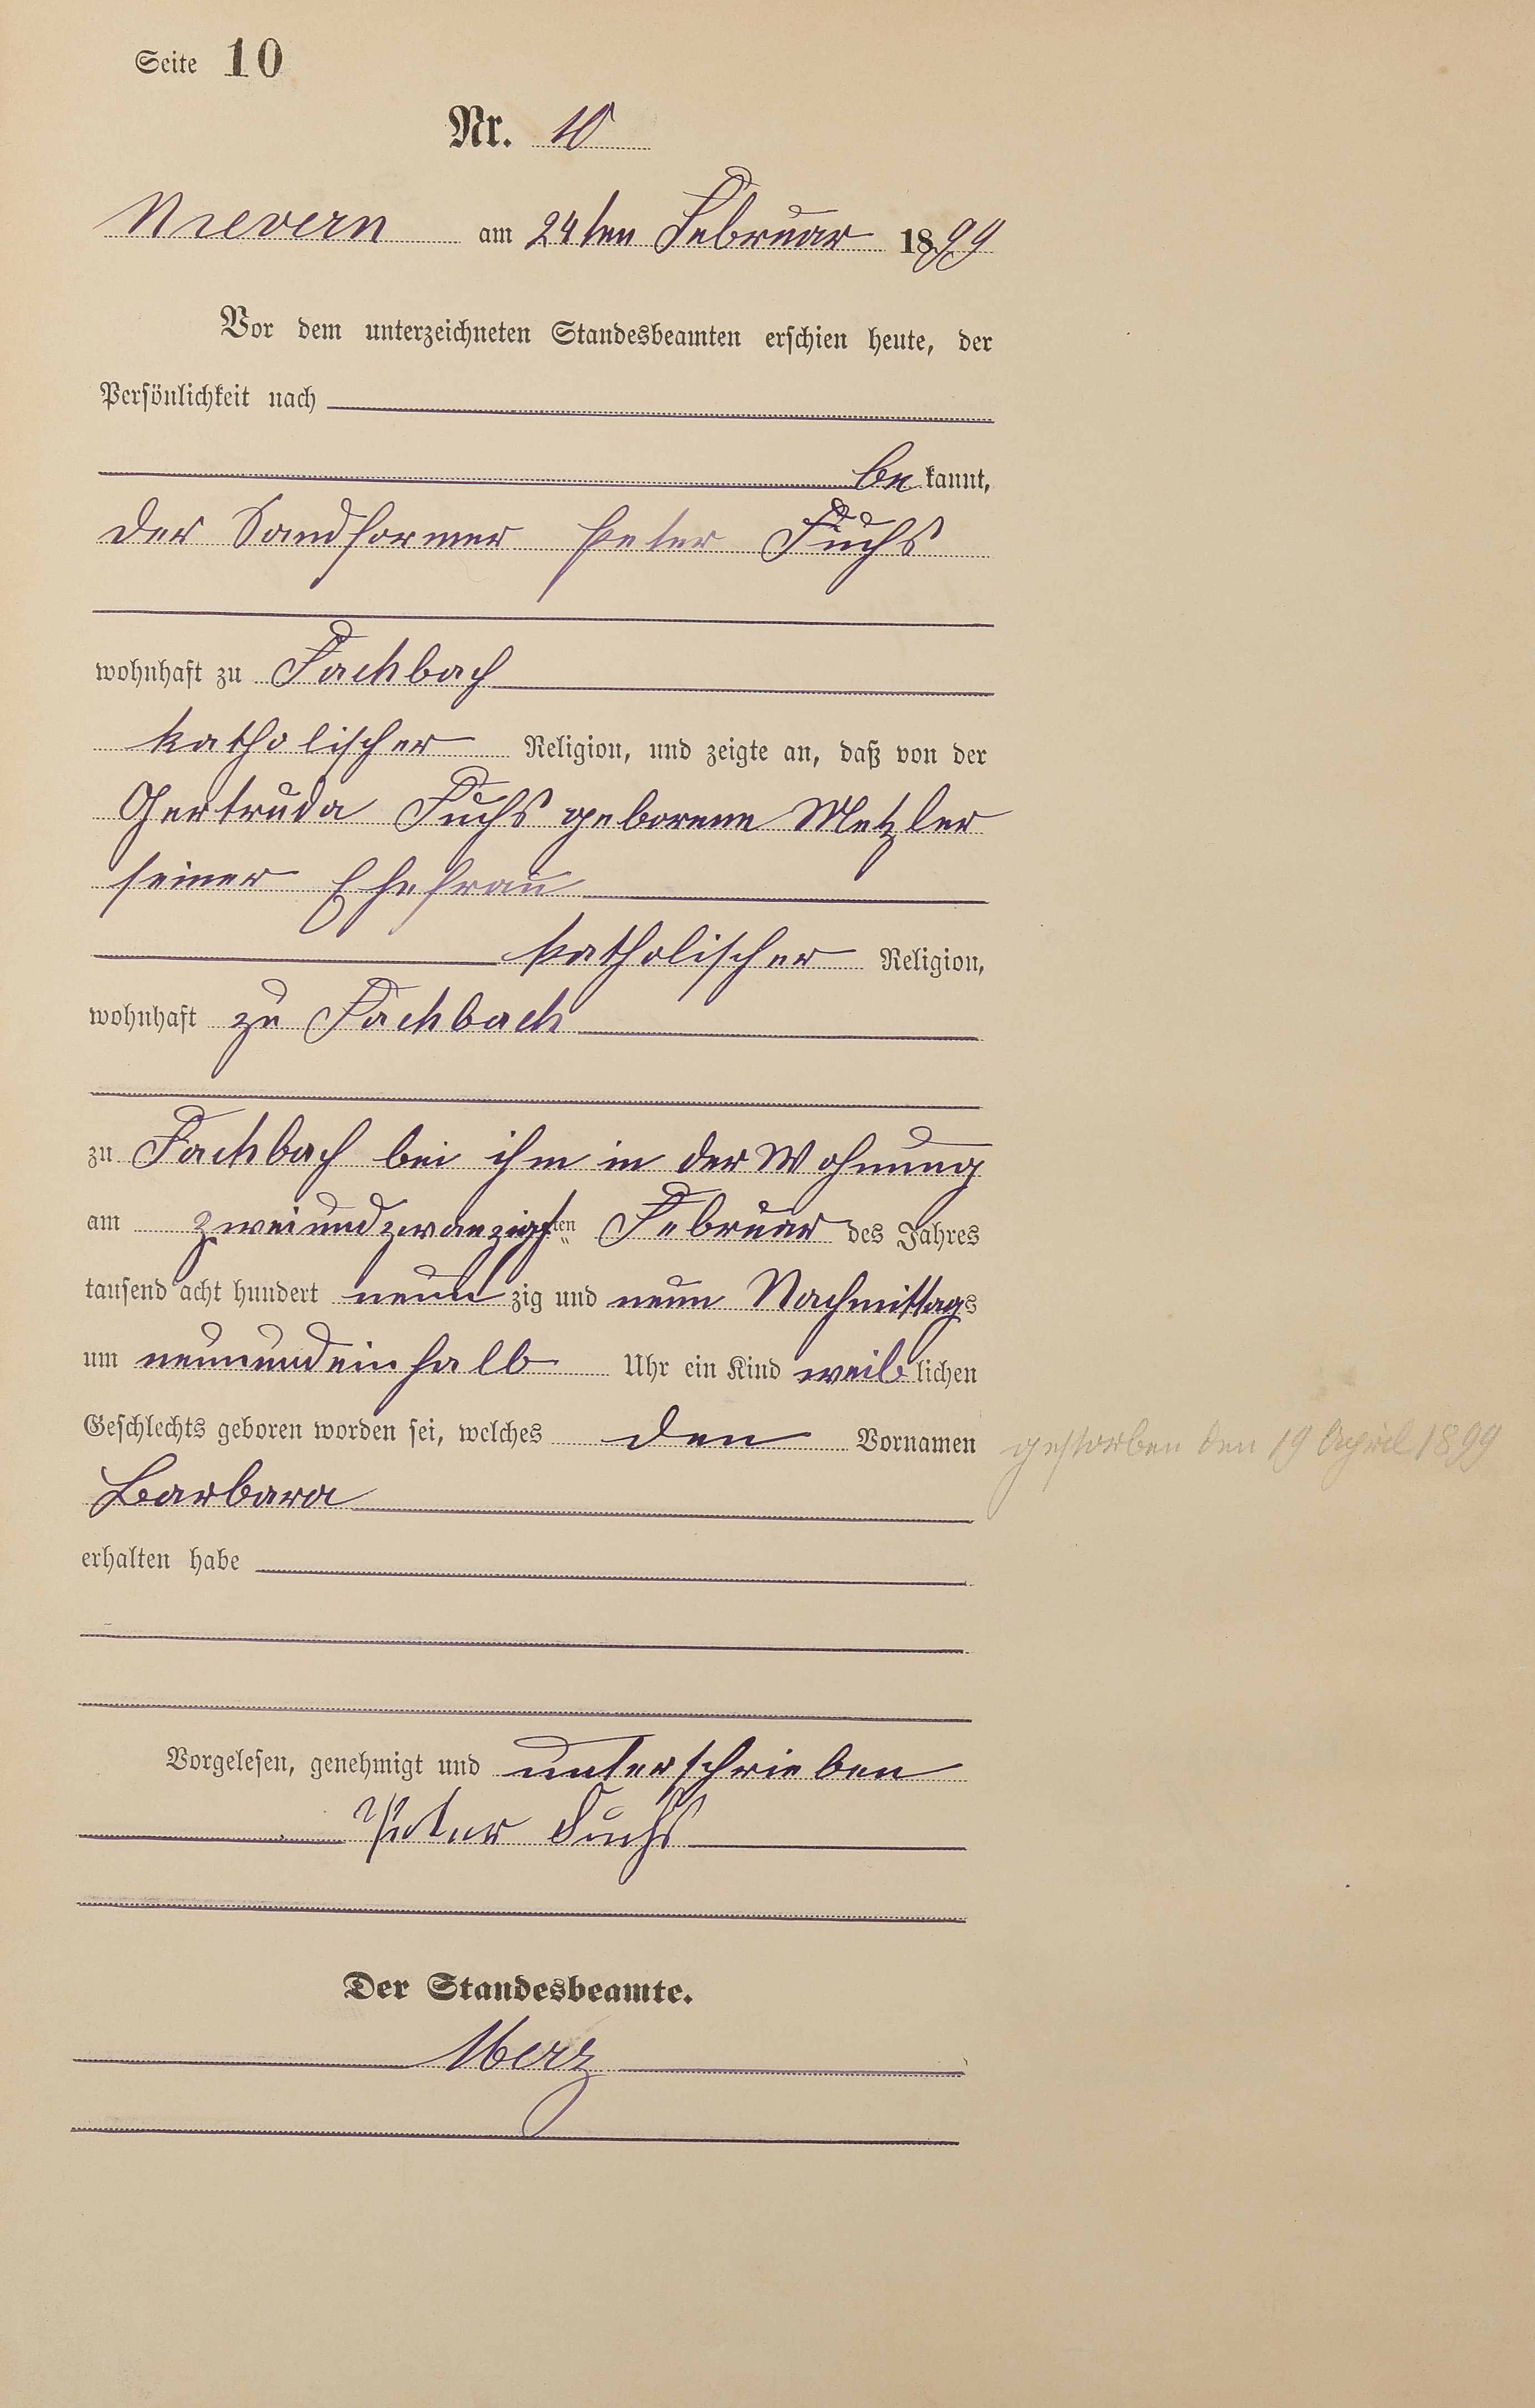 Seite 10
Nr. 10
Nievern am 24ten Februar 1899
Vor dem unterzeichneten Standesbeamten erschien heute, der
Persönlichkeit nach
be kannt,
der Sandformer Peter Fuchs
wohnhaft zu Fachbach
katholischer Religion, und zeigte an, daß von der
Gertruda Fuchs geborene Metzler
seiner Ehefrau
katholischer Religion,
wohnhaft zu Fachbach
zu Fachbach bei ihm in der Wohnung
am zweiundzwanzigsten Februar des Jahres
tausend acht hundert neun zig und neun Nachmittags
um neunundeinhalb Uhr ein Kind weib lichen
Geschlechts geboren worden sei, welches den Vornamen
gestorben den 19 April 1899
Barbara
erhalten habe
Vorgelesen, genehmigt und unterschrieben
Peter Fuchs
Der Standesbeamte.
Merz